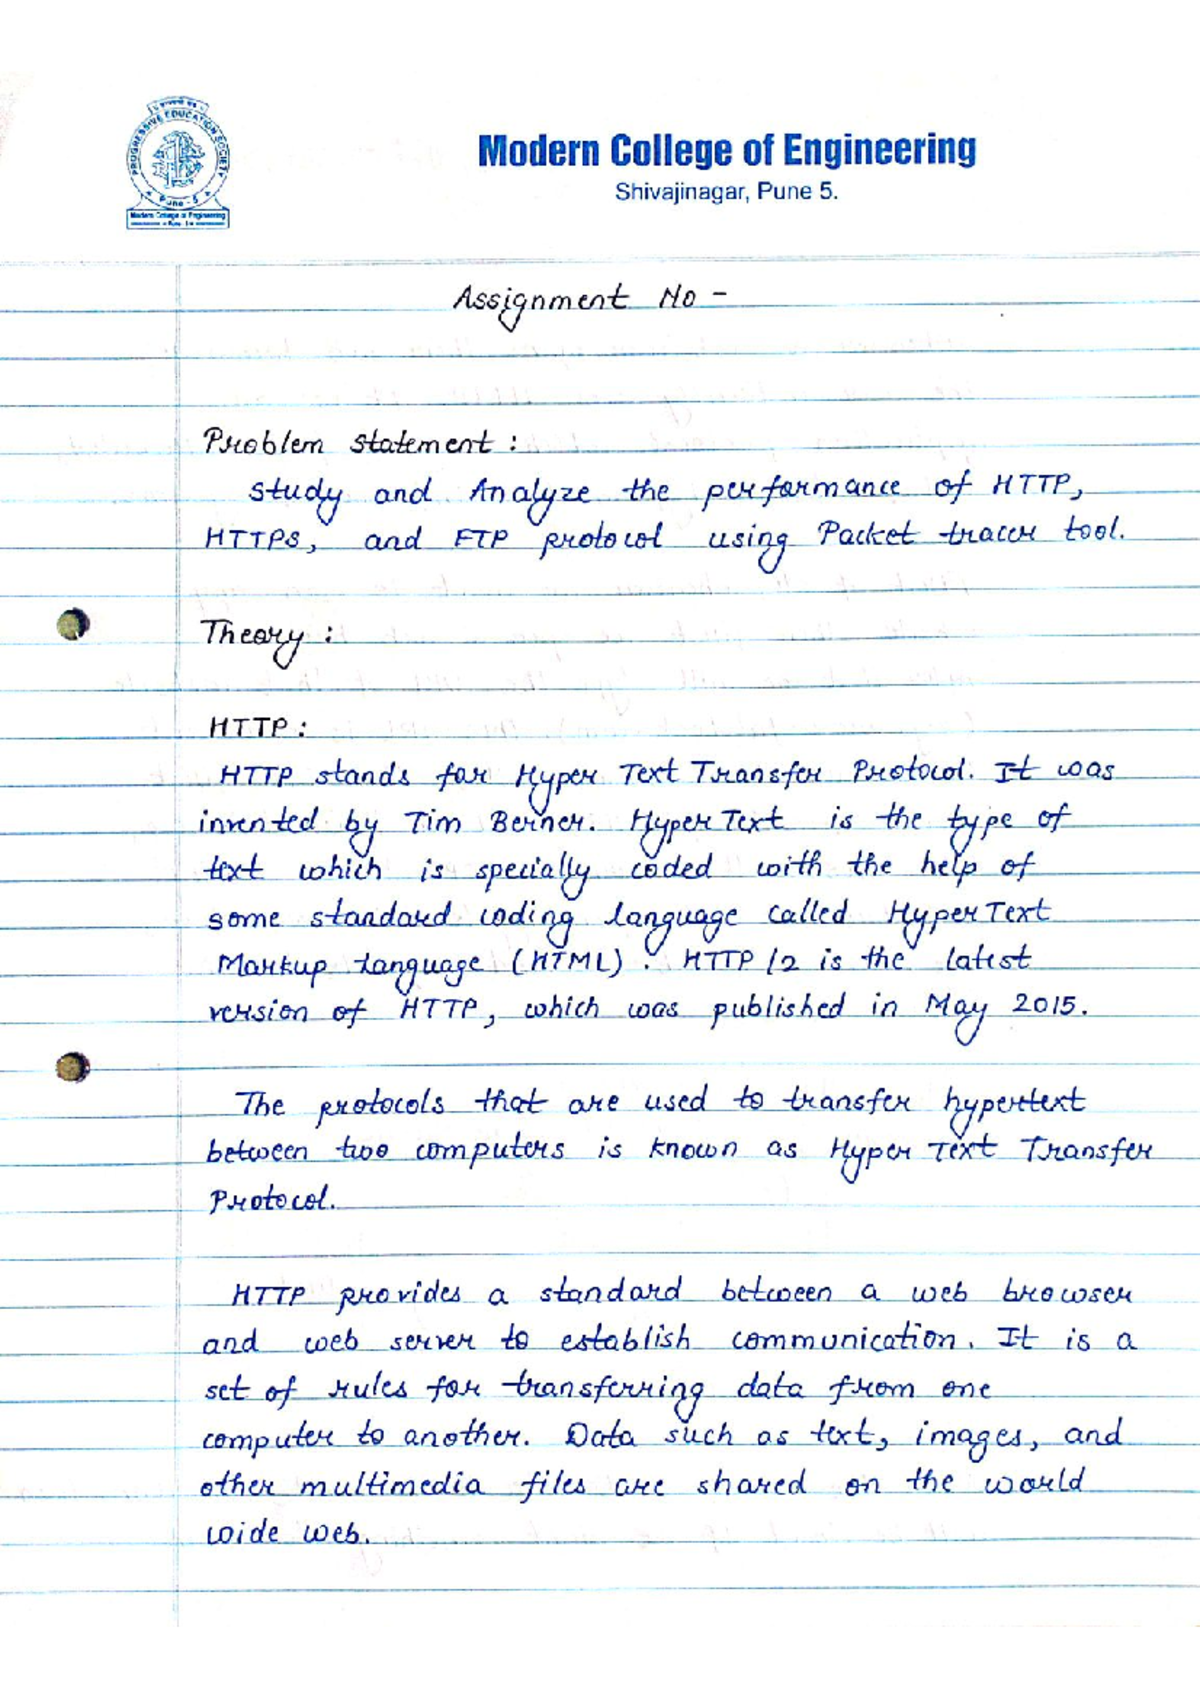 PROGRESSIVE EDUCATION SOCIETY
Pune - 5
Modern College of Engineering
Modern College of Engineering
Shivajinagar, Pune 5.
Assignment No -
Problem statement :
study and Analyze the performance of HTTP,
HTTPS, and FTP protocol using Packet tracer tool.
Theory :
HTTP :
HTTP stands for Hyper Text Transfer Protocol. It was
invented by Tim Berner. HyperText is the type of
text which is specially coded with the help of
some standard coding language called HyperText
Markup Language (HTML). HTTP/2 is the latest
version of HTTP, which was published in May 2015.
The protocols that are used to transfer hypertext
between two computers is known as Hyper Text Transfer
Protocol.
HTTP provides a standard between a web browser
and web server to establish communication. It is a
set of rules for transferring data from one
computer to another. Data such as text, images, and
other multimedia files are shared on the world
wide web.